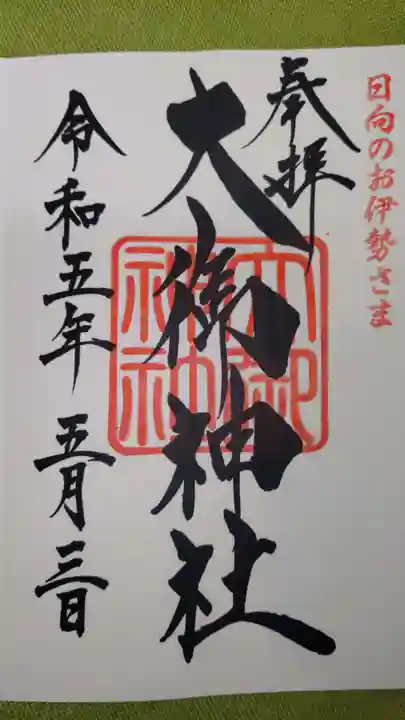 日向のお伊勢さま
奉拝
大御神社
大御神社
令和五年 五月三日